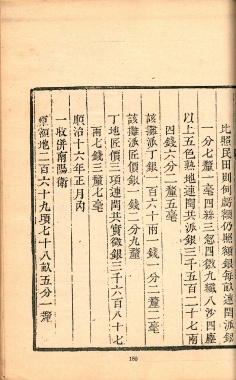 比照民田則例虧額仍照額銀每畝連閏派銀
一分七釐一毫四絲三忽四微九纖八沙四塵
以上五色熟地連閏共派銀三千五百二十七兩
四錢六分二釐五毫
該攤派丁銀一百六十兩一錢一分二釐二毫
該攤派匠價銀一兩一錢二分九釐
丁地匠價三項連閏共實徵銀三千六百八十七
兩七錢三釐七毫
順治十六年正月內
一收併南陽衛
原額地二百六十九頃七十八畝五分一釐
180